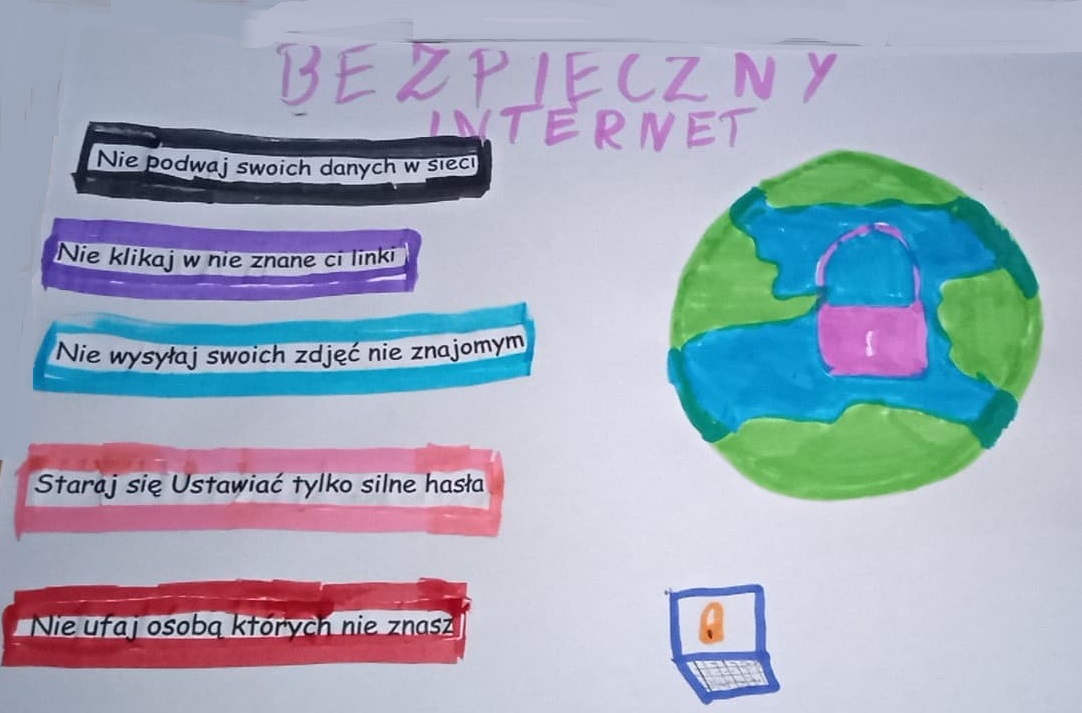 BEZPIECZNY
INTERNET
Nie podwaj swoich danych w sieci
Nie klikaj w nie znane ci linki
Nie wysyłaj swoich zdjęć nie znajomym
Staraj się Ustawiać tylko silne hasła
Nie ufaj osobą których nie znasz